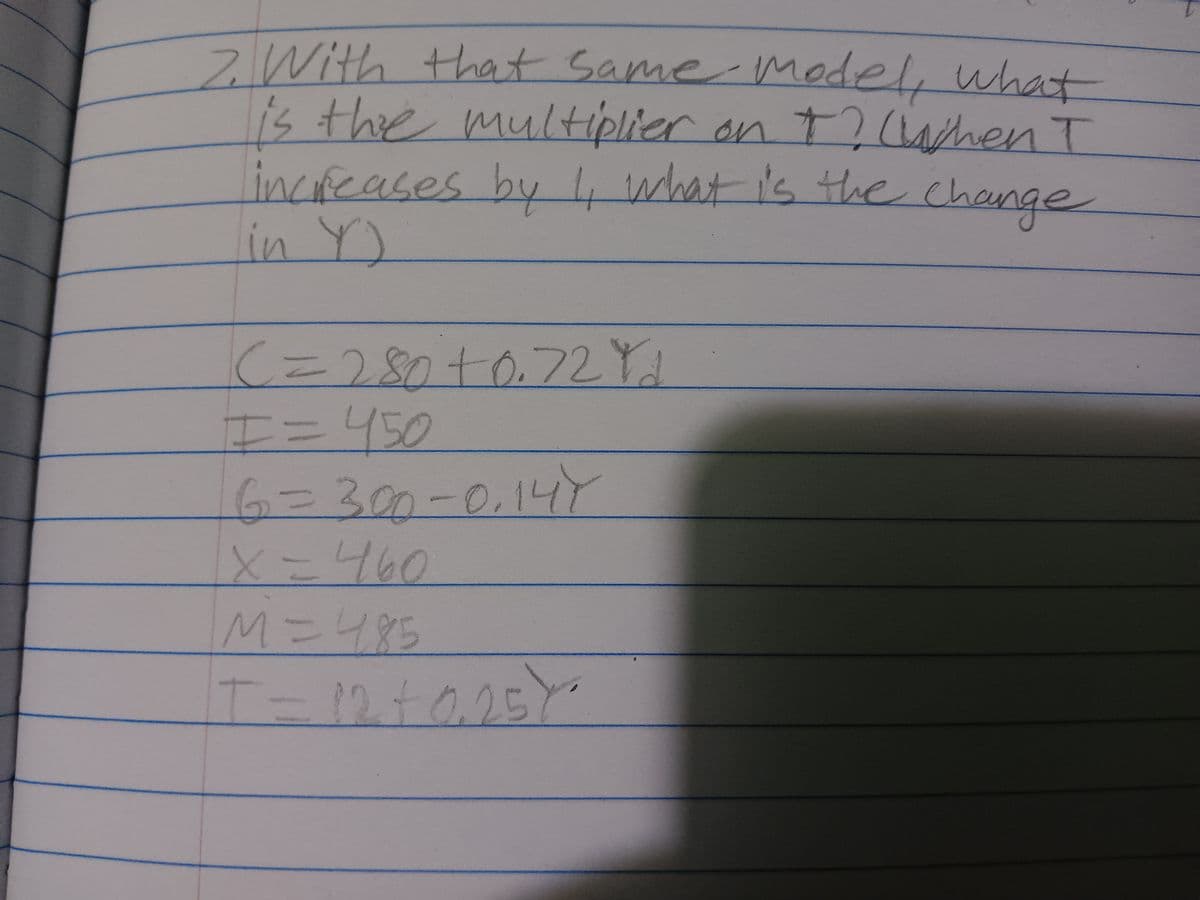 2. With that same model, what
is the multiplier on T? (When T
increases by 1, what is the change
in Y)
C = 280 + 0.72 Yd
I = 450
G = 300 - 0.14Y
X = 460
M = 485
T = 12 + 0.25Y